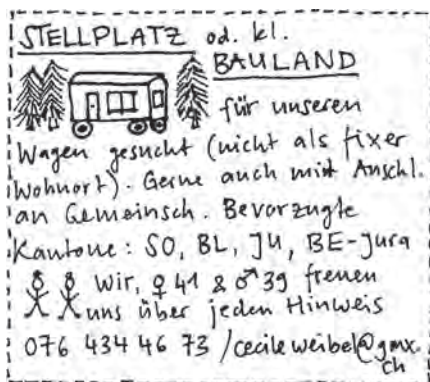 STELLPLATZ od. kl.
BAULAND
für unseren
Wagen gesucht (nicht als fixer
Wohnort). Gerne auch mit Anschl.
an Gemeinsch. Bevorzugte
Kantone: SO, BL, JU, BE-Jura
Wir, ♀ 41 & ♂ 39 freuen
uns über jeden Hinweis
076 434 46 73 / cecileweibel@gmx.
ch